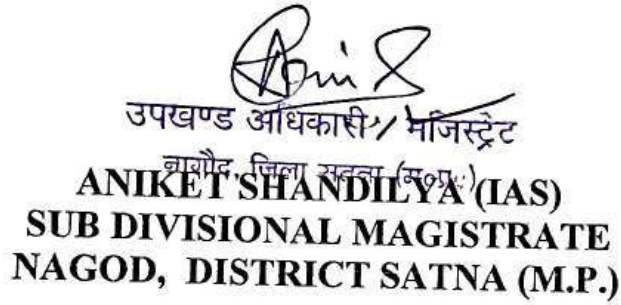 उपखण्ड अधिकारी / मजिस्ट्रेट
नागौद, जिला सतना (म०प्र०)
ANIKET SHANDILYA (IAS)
SUB DIVISIONAL MAGISTRATE
NAGOD, DISTRICT SATNA (M.P.)